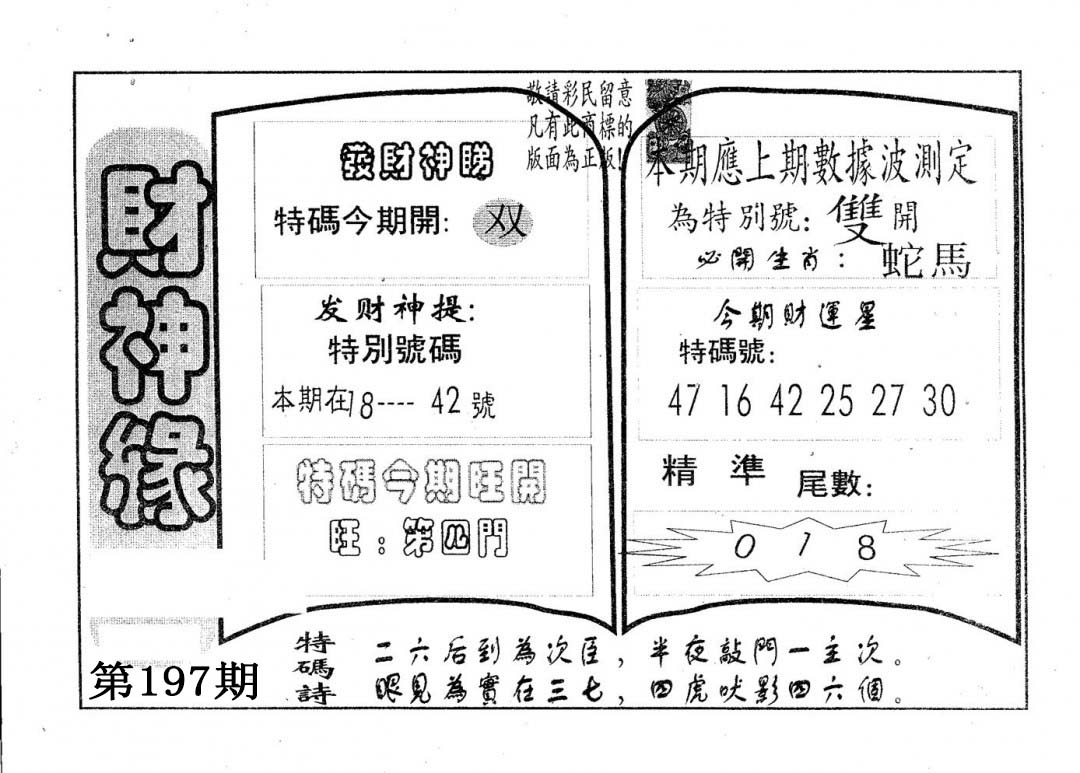 財神緣
第197期
敬請彩民留意
凡有此商標的
版面為正版!
發財神睇
特碼今期開: 双
发财神提:
特別號碼
本期在18---- 42號
特碼今期旺開
旺:第四門
本期應上期數據波測定
為特別號: 雙開
必開生肖: 蛇馬
今期財運星
特碼號:
47 16 42 25 27 30
精準 尾數:
0 1 8
特碼詩
二六后到為次臣，半夜敲門一主次。
眼見為實在三七，四虎吠影四六個。